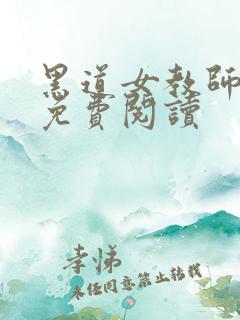 黑道女教師
免費閱讀
孝悌
未经同意禁止转载